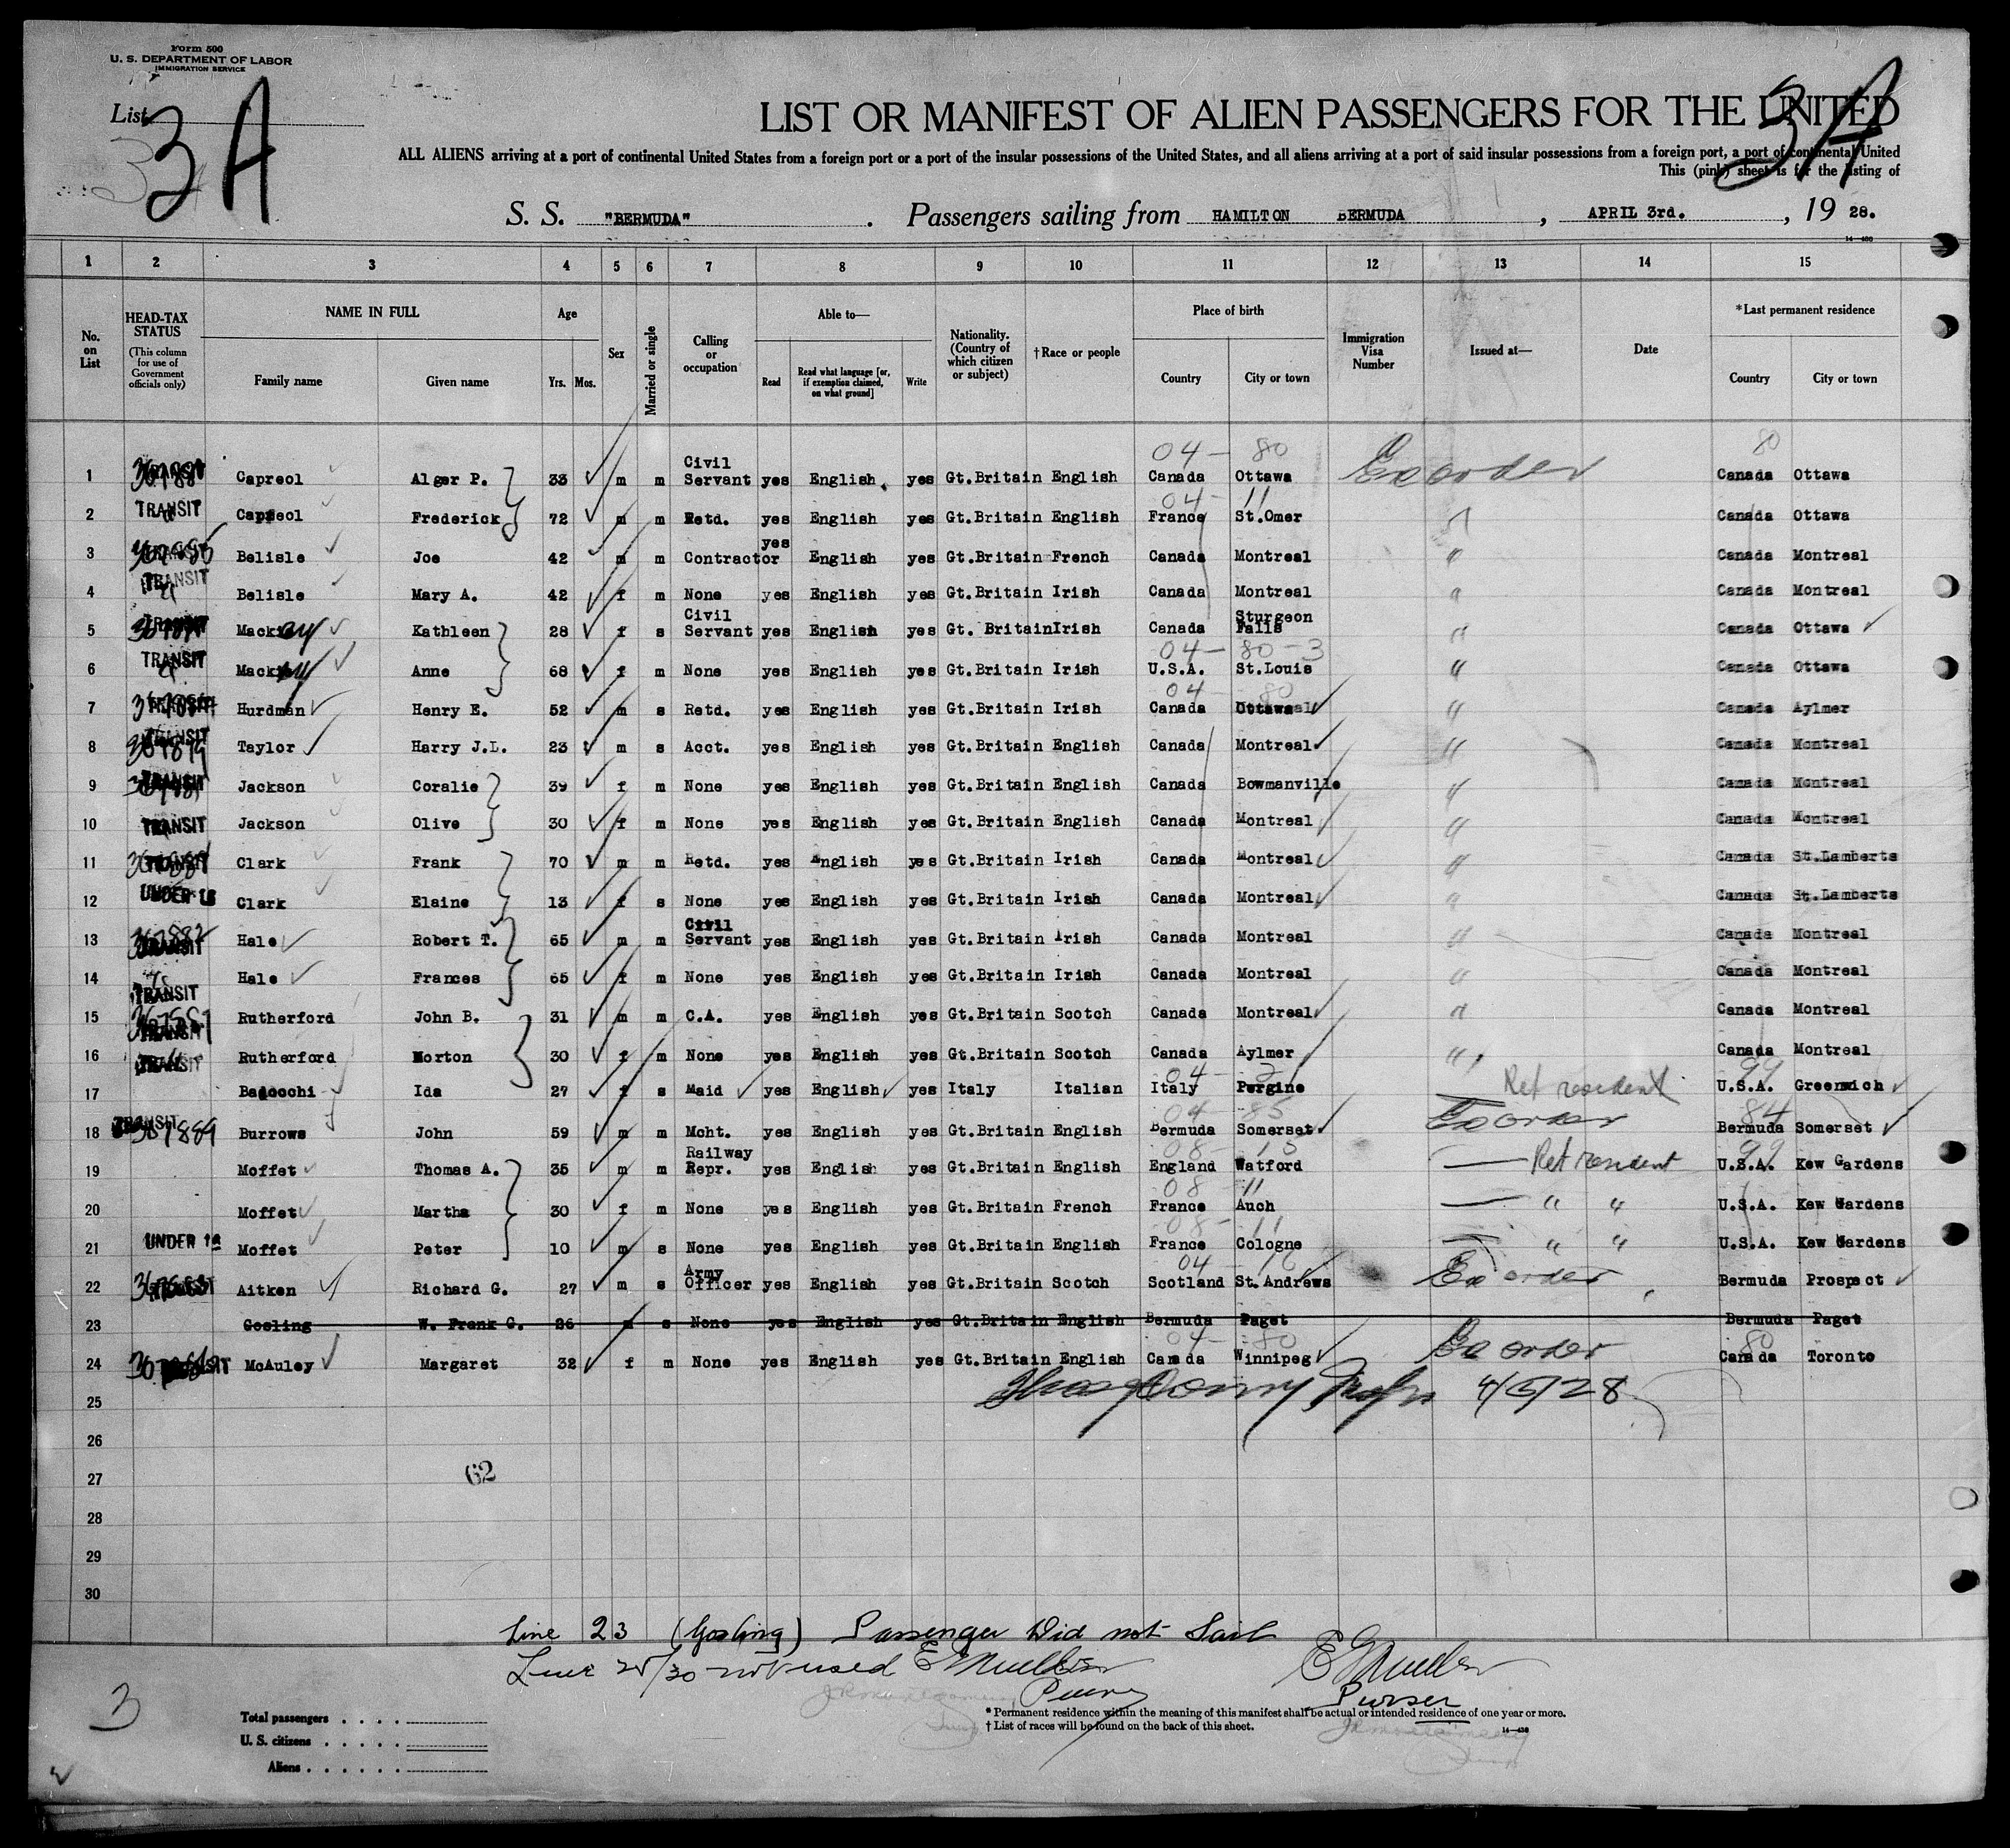 Form 500
U. S. DEPARTMENT OF LABOR
IMMIGRATION SERVICE
List 3A
3A
LIST OR MANIFEST OF ALIEN PASSENGERS FOR THE UNITED
ALL ALIENS arriving at a port of continental United States from a foreign port or a port of the insular possessions of the United States, and all aliens arriving at a port of said insular possessions from a foreign port, a port of continental United
This (pink) sheet is for the listing of
S. S. "BERMUDA". Passengers sailing from HAMILTON BERMUDA, APRIL 3rd., 19 28.
14—430
1 2 3 4 5 6 7 8 9 10 11 12 13 14 15
No. on List
HEAD-TAX STATUS (This column for use of Government officials only)
NAME IN FULL Family name Given name
Age Yrs. Mos.
Sex
Married or single
Calling or occupation
Able to— Read Read what language [or, if exemption claimed, on what ground] Write
Nationality. (Country of which citizen or subject)
†Race or people
Place of birth Country City or town
Immigration Visa Number
Issued at—
Date
*Last permanent residence Country City or town
04 - 80 80
1 Capreol Alger P. 33 m m Civil Servant yes English yes Gt.Britain English Canada Ottawa Ex order Canada Ottawa
04 - 11
2 TRANSIT Capreol Frederick 72 m m Retd. yes English yes Gt.Britain English France St.Omer " Canada Ottawa
3 Belisle Joe 42 m m Contractor yes English yes Gt.Britain French Canada Montreal " Canada Montreal
4 TRANSIT Belisle Mary A. 42 f m None yes English yes Gt.Britain Irish Canada Montreal " Canada Montreal
5 TRANSIT Mackay Kathleen 28 f s Civil Servant yes English yes Gt. Britain Irish Canada Sturgeon Falls " Canada Ottawa
04 - 80 - 3
6 TRANSIT Anne 68 f m None yes English yes Gt.Britain Irish U.S.A. St.Louis " Canada Ottawa
04 - 80
7 TRANSIT Hurdman Henry E. 52 m s Retd. yes English yes Gt.Britain Irish Canada " Canada Aylmer
8 TRANSIT Taylor Harry J.L. 23 m s Acct. yes English yes Gt.Britain English Canada Montreal " Canada Montreal
9 TRANSIT Jackson Coralie 39 f m None yes English yes Gt.Britain English Canada Bowmanville " Canada Montreal
10 TRANSIT Jackson Olive 30 f m None yes English yes Gt.Britain English Canada Montreal " Canada Montreal
11 TRANSIT Clark Frank 70 m m Retd. yes English yes Gt.Britain Irish Canada Montreal " Canada St.Lamberts
12 UNDER 16 Clark Elaine 13 f s None yes English yes Gt.Britain Irish Canada Montreal " Canada St.Lamberts
13 TRANSIT Hale Robert T. 65 m m Civil Servant yes English yes Gt.Britain Irish Canada Montreal " Canada Montreal
14 TRANSIT Hale Frances 65 f m None yes English yes Gt.Britain Irish Canada Montreal " Canada Montreal
15 TRANSIT Rutherford John B. 31 m m C.A. yes English yes Gt.Britain Scotch Canada Montreal " Canada Montreal
16 TRANSIT Rutherford Morton 30 f m None yes English yes Gt.Britain Scotch Canada Aylmer " Canada Montreal
04 - 2 99
17 Badocchi Ida 27 f s Maid yes English yes Italy Italian Italy Pergine Ret resident U.S.A. Greenwich
04 - 85 84
18 TRANSIT 367889 Burrows John 59 m m Mcht. yes English yes Gt.Britain English Bermuda Somerset Ex order Bermuda Somerset
08 - 15 99
19 Moffet Thomas A. 35 m m Railway Repr. yes English yes Gt.Britain English England Watford — Ret resident U.S.A. Kew Gardens
08 11
20 Moffet Martha 30 f m None yes English yes Gt.Britain French France Auch — " " U.S.A. Kew Gardens
08 - 11
21 UNDER 16 Moffet Peter 10 m s None yes English yes Gt.Britain English France Cologne — " " U.S.A. Kew Gardens
04 - 16
22 Aitken Richard G. 27 m s Army Officer yes English yes Gt.Britain Scotch Scotland St.Andrews Ex order Bermuda Prospect
23 Gosling W. Frank G. 26 m s None yes English yes Gt.Britain English Bermuda Paget Bermuda Paget
04 - 80 80
24 McAuley Margaret 32 f m None yes English yes Gt.Britain English Canada Winnipeg Ex order Canada Toronto
25 4/6/28
26
27 62
28
29
30
Line 23 (Gosling) Passenger Did not Sail
Line 25/30 not used E Mueller
Purser
E Mueller
Purser
3
Total passengers
U. S. citizens
Aliens
* Permanent residence within the meaning of this manifest shall be actual or intended residence of one year or more.
† List of races will be found on the back of this sheet.
14—430